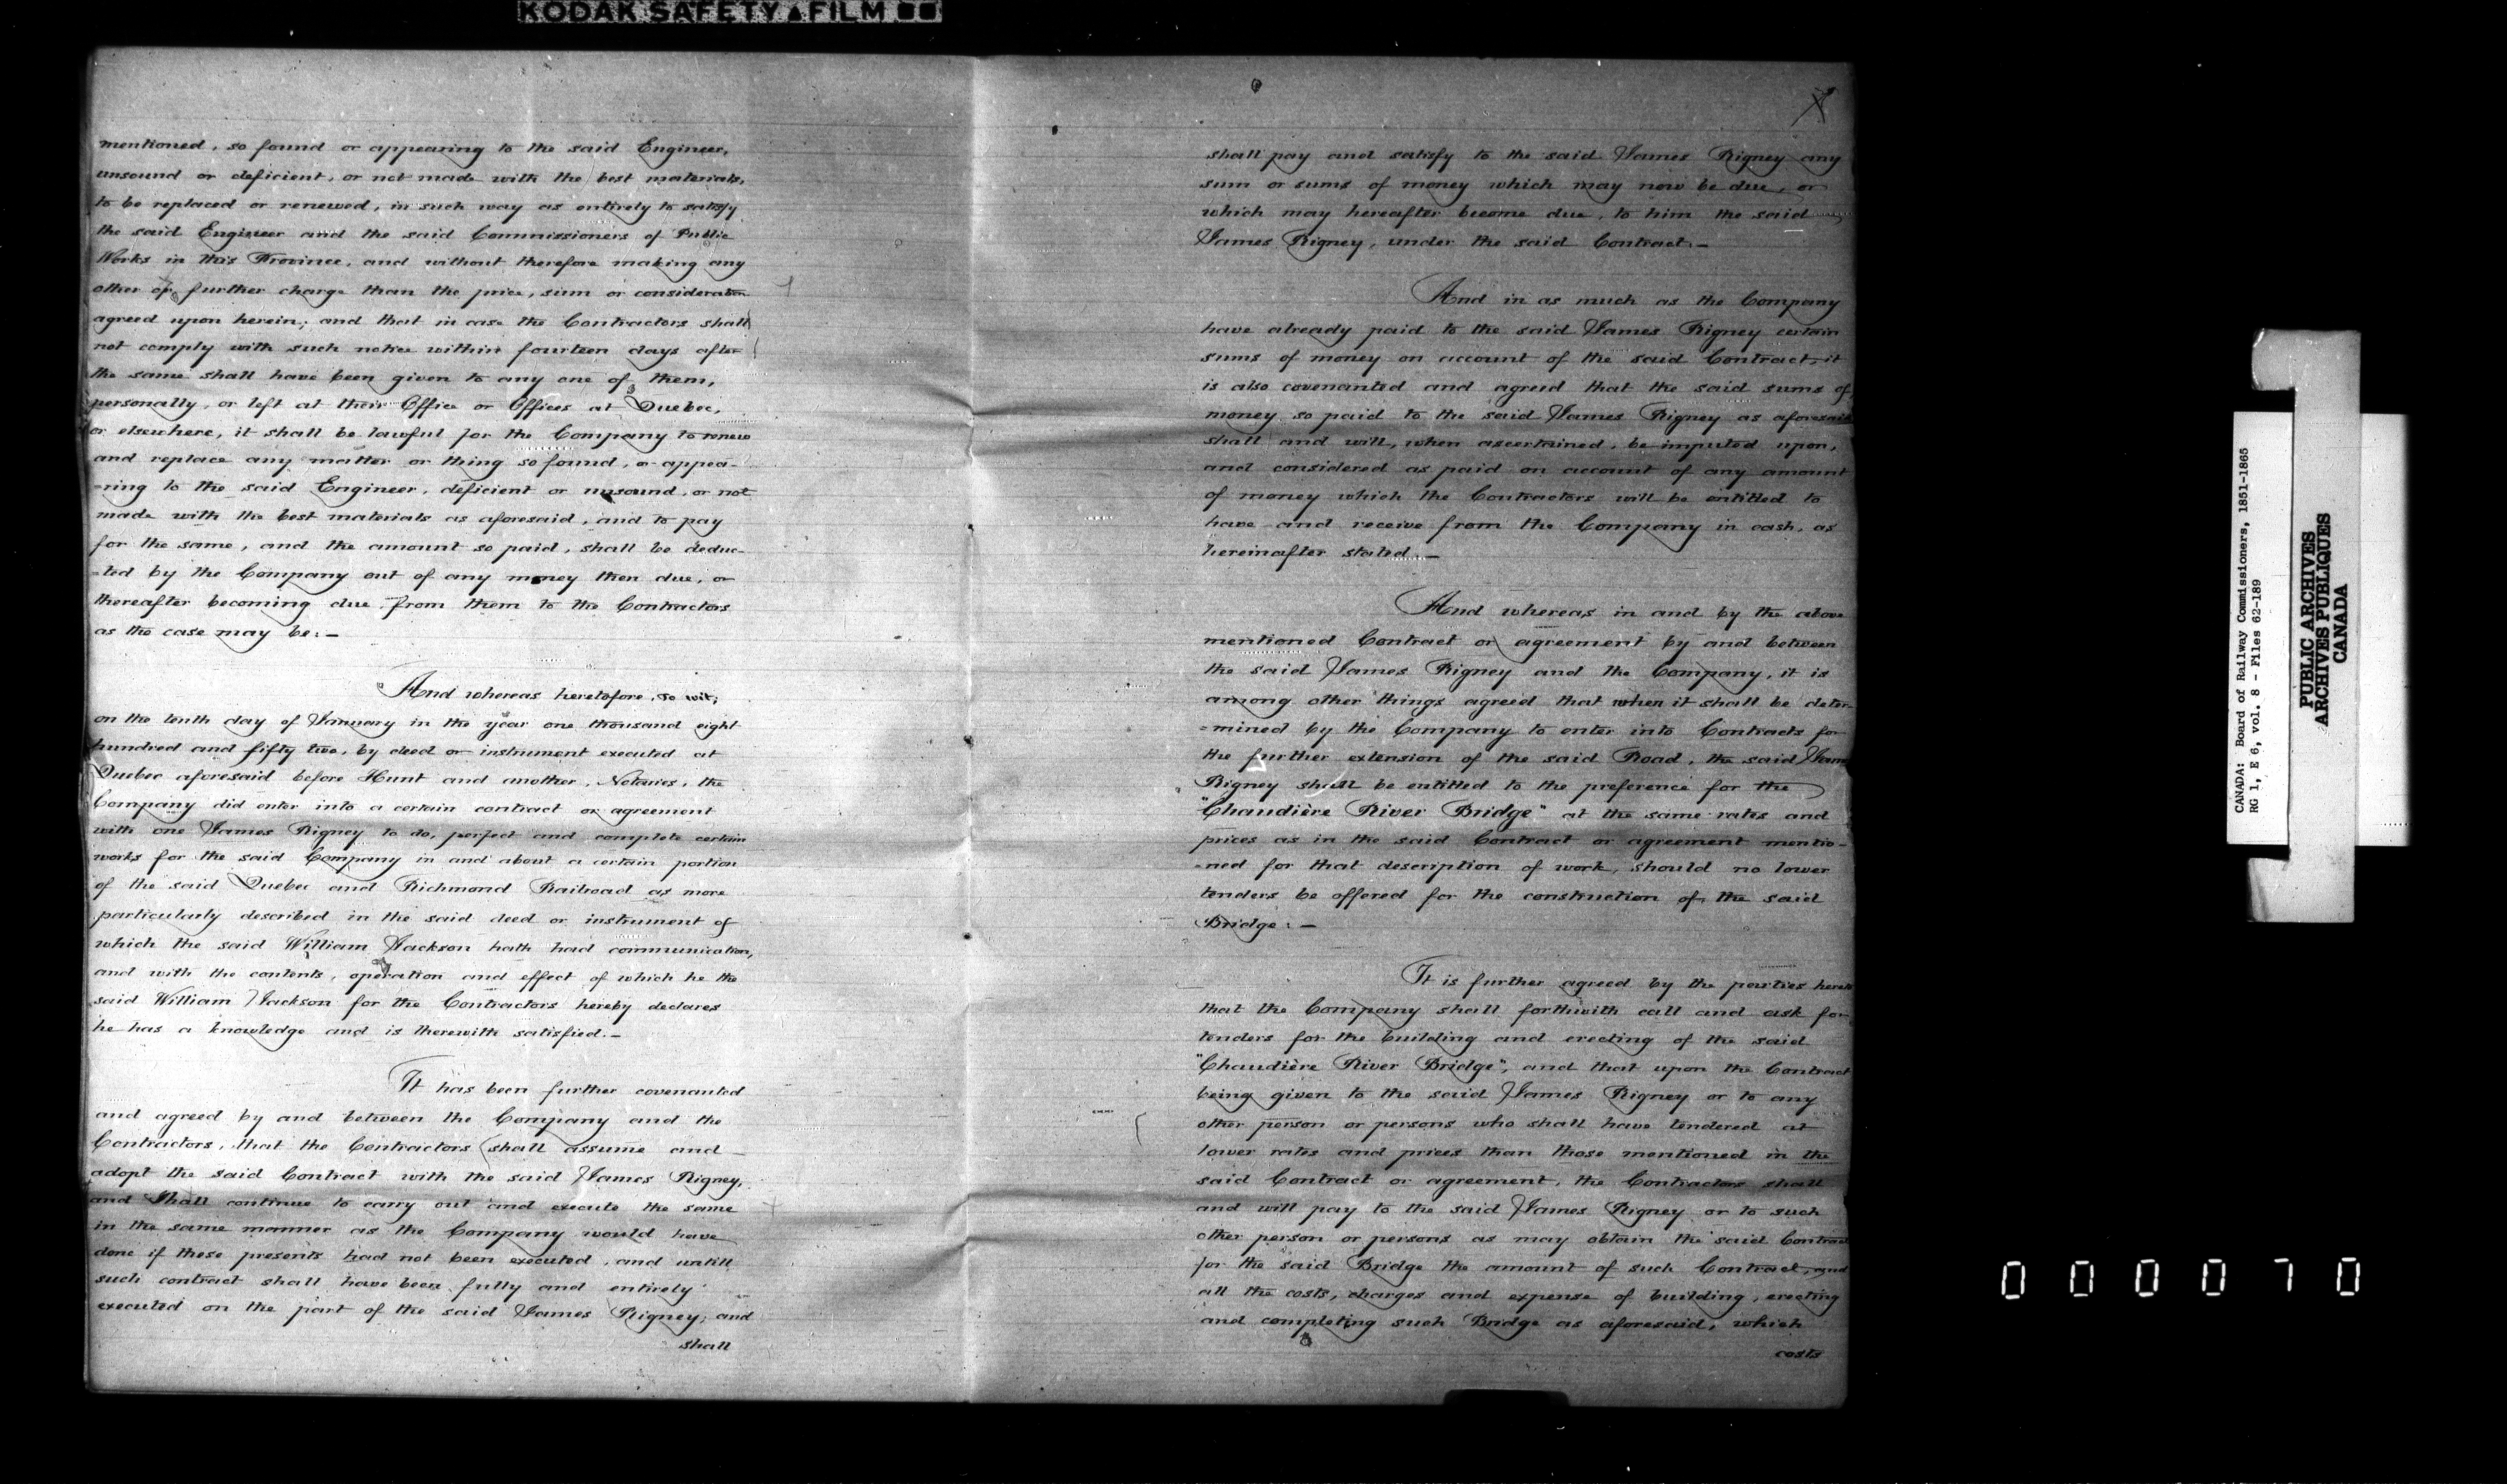 KODAK SAFETY ▲ FILM
mentioned, so found or appearing to the said Engineer,
unsound or deficient, or not made with the best materials,
to be replaced or renewed, in such way as entirely to satisfy
the said Engineer and the said Commissioners of Public
Works in this Province, and without therefore making any
other or further charge than the price, sum or consideration
agreed upon herein; and that in case the Contractors shall
not comply with such notice within fourteen days after
the same shall have been given to any one of them,
personally, or left at their Office or Offices at Quebec,
or elsewhere, it shall be lawful for the Company to renew
and replace any matter or thing so found, or appea-
-ring to the said Engineer, deficient or unsound, or not
made with the best materials as aforesaid, and to pay
for the same, and the amount so paid, shall be deduc-
-ted by the Company out of any money then due, or
thereafter becoming due from them to the Contractors
as the case may be:-
And whereas heretofore, to wit;
on the tenth day of January in the year one thousand eight
hundred and fifty two, by deed or instrument executed at
Quebec aforesaid before Hunt and another, Notaries, the
Company did enter into a certain contract or agreement
with one James Rigney to do, perfect and complete certain
works for the said Company in and about a certain portion
of the said Quebec and Richmond Railroad as more
particularly described in the said deed or instrument of
which the said William Jackson hath had communication,
and with the contents, operation and effect of which he the
said William Jackson for the Contractors hereby declares
he has a knowledge and is therewith satisfied.-
It has been further covenanted
and agreed by and between the Company and the
Contractors, that the Contractors shall assume and
adopt the said Contract with the said James Rigney,
and shall continue to carry out and execute the same
in the same manner as the Company would have
done if these presents had not been executed, and untill
such contract shall have been fully and entirely
executed on the part of the said James Rigney; and
shall
shall pay and satisfy to the said James Rigney any
sum or sums of money which may now be due, or
which may hereafter become due, to him the said
James Rigney, under the said Contract.-
And in as much as the Company
have already paid to the said James Rigney certain
sums of money on account of the said Contract, it
is also covenanted and agreed that the said sums of
money so paid to the said James Rigney as aforesaid
shall and will, when ascertained, be imputed upon,
and considered as paid on account of any amount
of money which the Contractors will be entitled to
have and receive from the Company in cash, as
hereinafter stated.-
And whereas in and by the above
mentioned Contract or agreement by and between
the said James Rigney and the Company, it is
among other things agreed that when it shall be deter-
-mined by the Company to enter into Contracts for
the further extension of the said Road, the said James
Rigney shall be entitled to the preference for the
"Chaudière River Bridge" at the same rates and
prices as in the said Contract or agreement mentio-
-ned for that description of work, should no lower
tenders be offered for the construction of the said
Bridge:-
It is further agreed by the parties hereto
that the Company shall forthwith call and ask for
tenders for the building and erecting of the said
"Chaudière River Bridge", and that upon the Contract
being given to the said James Rigney or to any
other person or persons who shall have tendered at
lower rates and prices than those mentioned in the
said Contract or agreement, the Contractors shall
and will pay to the said James Rigney or to such
other person or persons as may obtain the said Contract
for the said Bridge the amount of such Contract, and
all the costs, charges and expense of building, erecting
and completing such Bridge as aforesaid, which
costs
CANADA: Board of Railway Commissioners, 1851-1865
RG 1, E 6, vol. 8 - Files 62-189
PUBLIC ARCHIVES
ARCHIVES PUBLIQUES
CANADA
000070